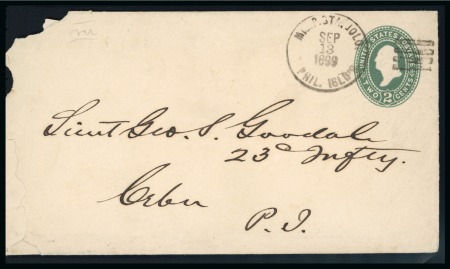 over
MIL. P. STA. JOLO
SEP
13
1899
PHIL. ISLDS
UNITED STATES
TWO 2 CENTS
Lieut Geo. S. Goodale
23d Infty.
Cebu
P. I.